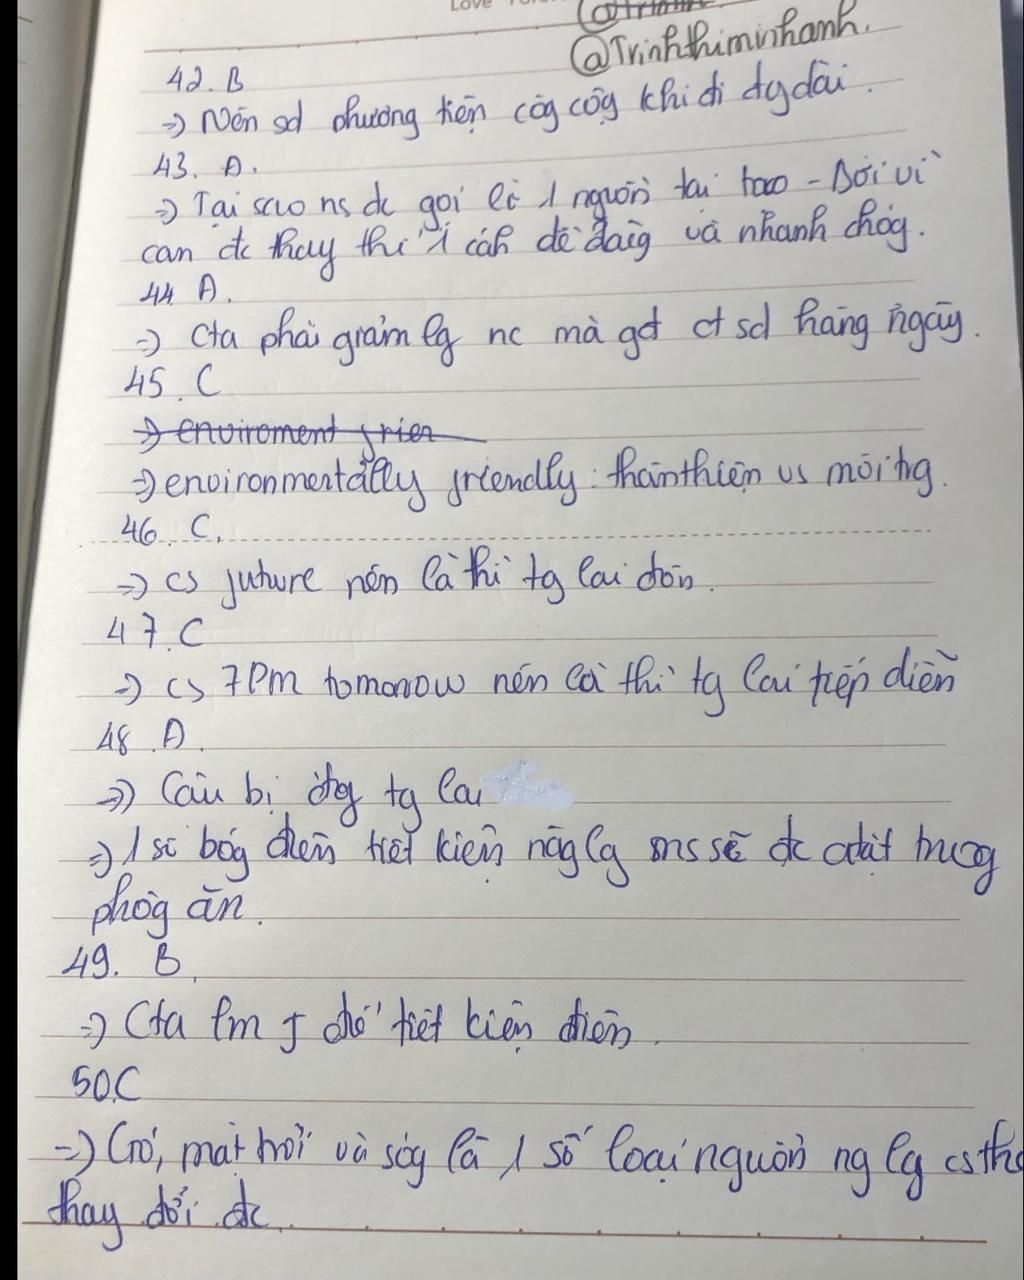 Love
@Trinhthiminhanh.
42. B
=> Nên sd phương tiện côg cộg khi đi đg dài.
43. A.
=> Tại sao ns đc gọi là 1 nguồn tái tạo - Bởi vì
can đc thay thế 1 cáh dễ dàg và nhanh chóg.
44. A.
=> Cta phải giảm lg nc mà gđ ct sd hàng ngày.
45. C
=> enviroment frien
=> environmentally friendly: thân thiện vs môi trg.
46. C.
=> cs future nên là thì tg lai đơn.
47. C
=> cs 7Pm tomorrow nên là thì tg lai tiếp diễn
48. A.
=> Câu bị độg tg lai
=> 1 số bóg đèn tiết kiệm năg lg ms sẽ đc đặt trog
phòg ăn.
49. B.
=> Cta lm j để tiết kiệm điện.
50.C
=> Gió, mặt trời và sóg là 1 số loại nguồn ng lg cs thể
thay đổi đc